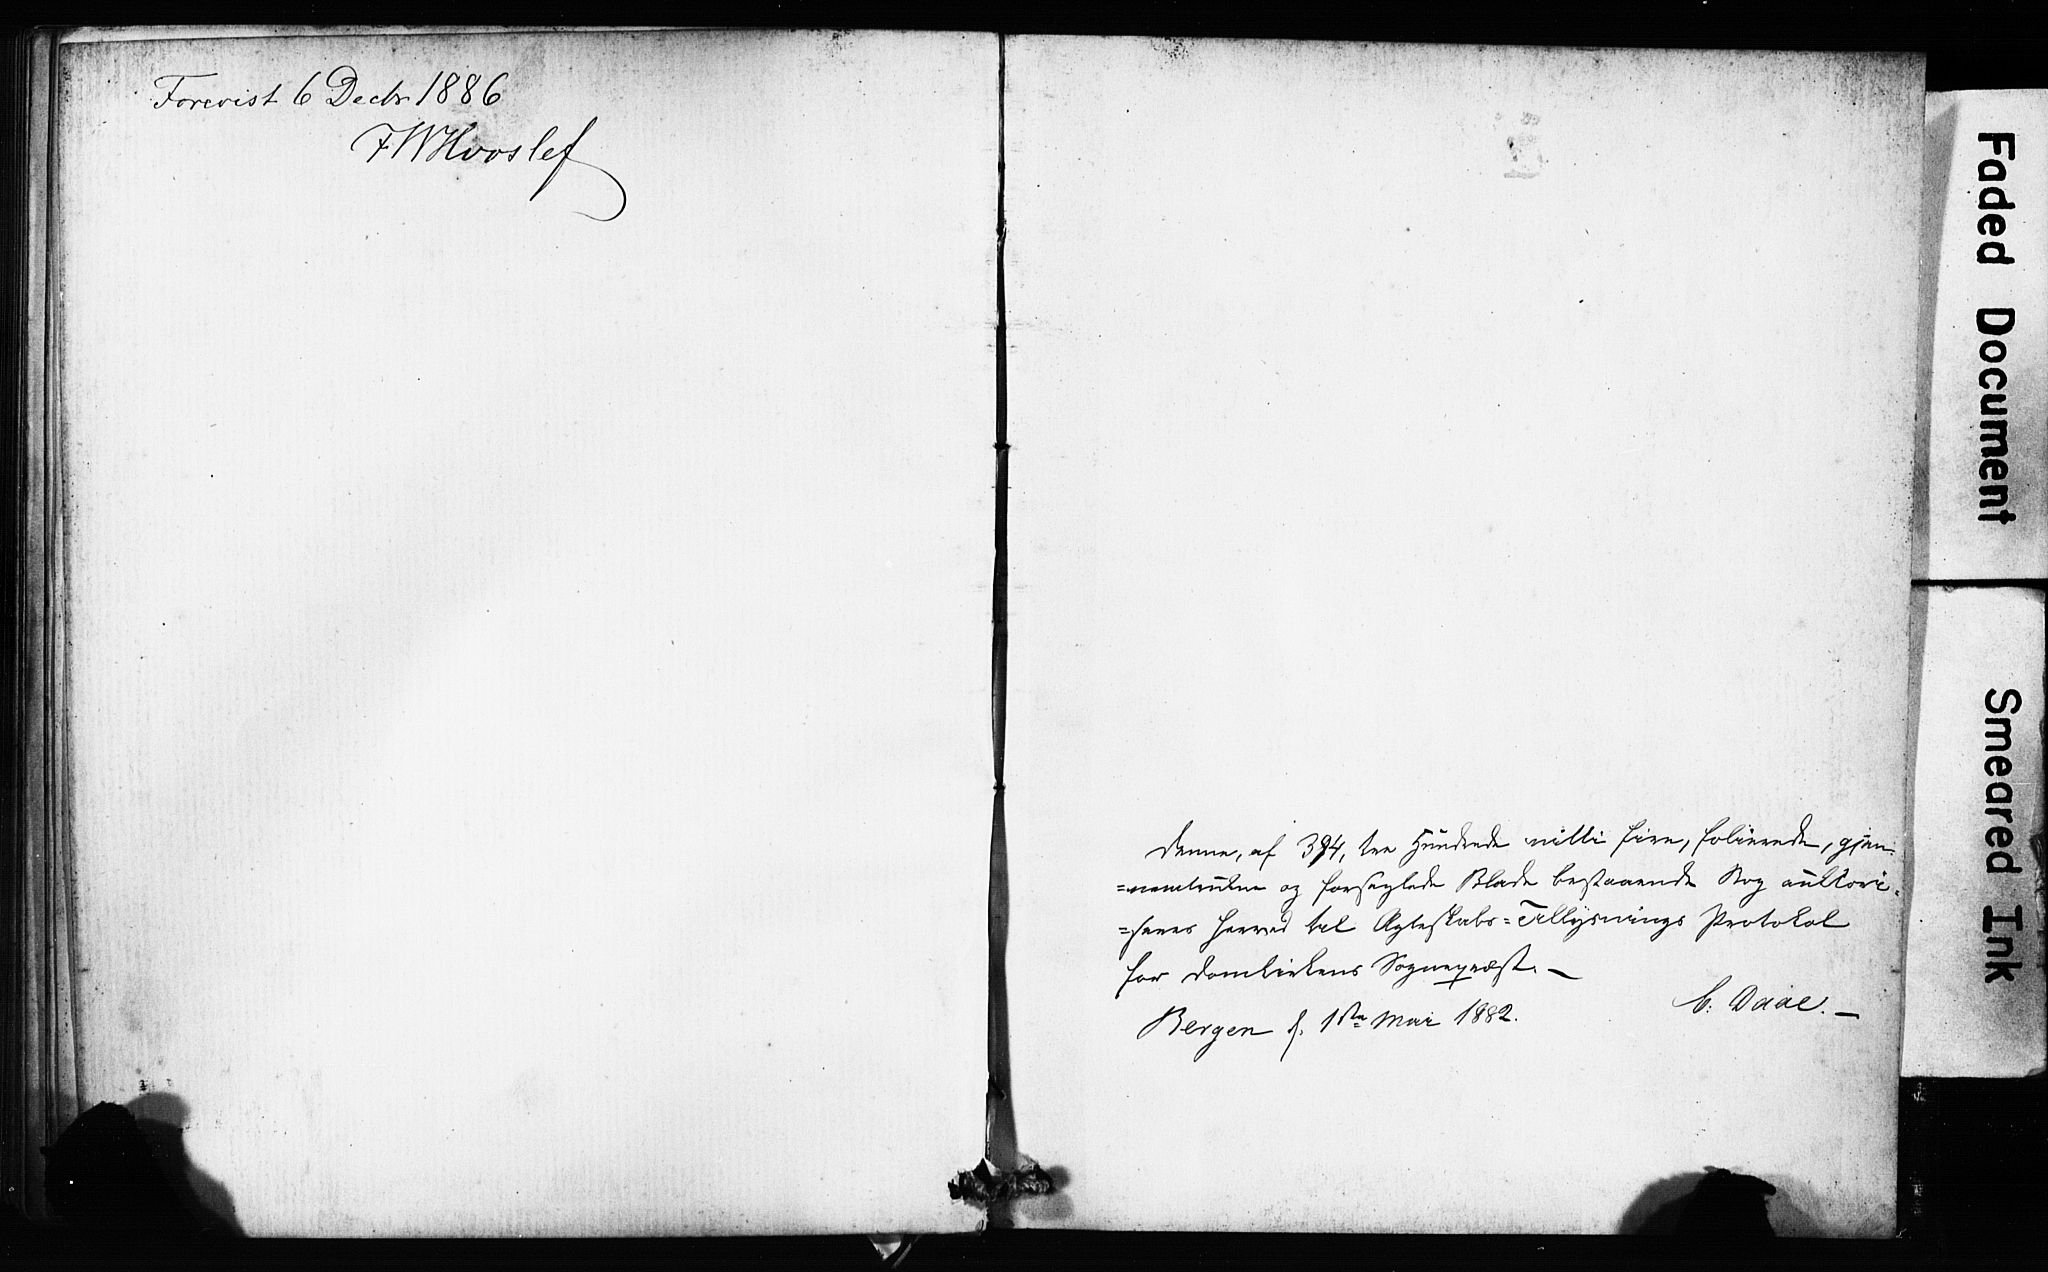 Forevist 6 Decbr 1886
F W Hvoslef
Denne, af 394, tre Hundrede nitti fire, folierede, gjen-
=nemtrukne og forseglede Blade bestaaende Bog auktori-
=seres herved til Ægteskabs=Tillysnings Protokol
for Domkirkens Sogneprest. —
Bergen d. 1ste Mai 1882.
C: Daae. —
Faded Document
Smeared Ink